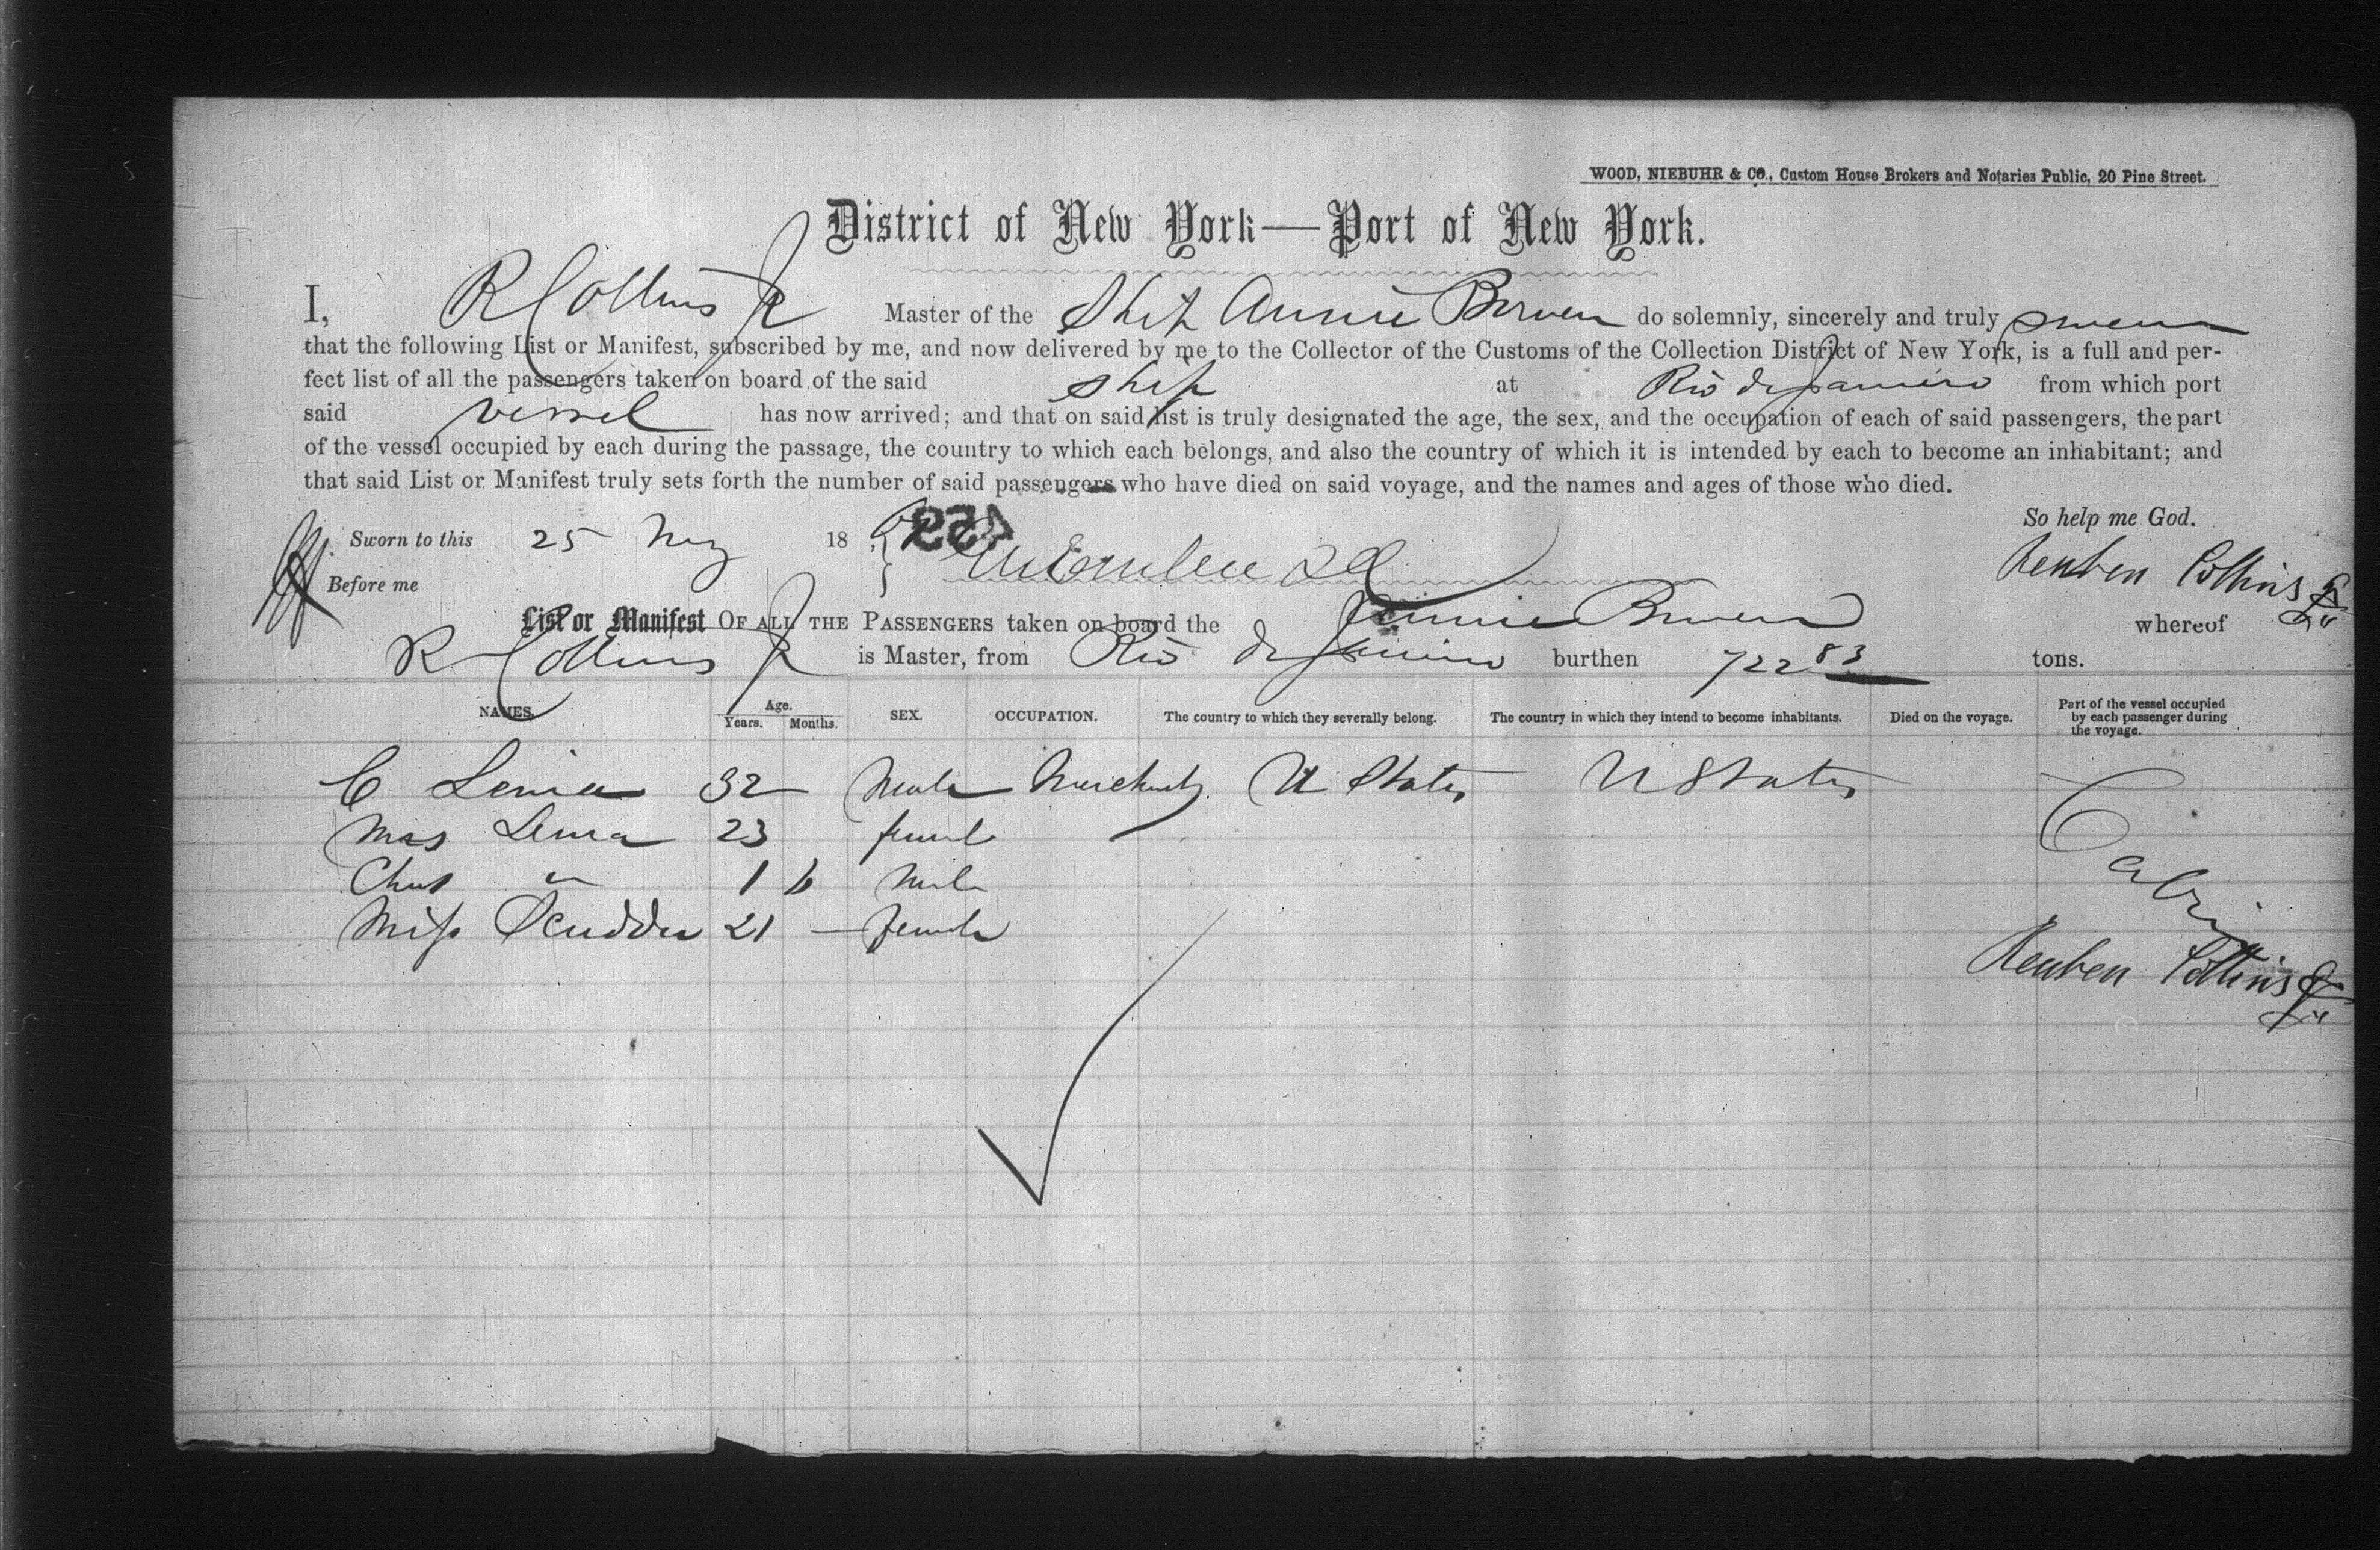 WOOD, NIEBUHR & CO., Custom House Brokers and Notaries Public, 20 Pine Street.
District of New York—Port of New York.
I, R Collins Jr Master of the Ship Annie Bowen do solemnly, sincerely and truly swear
that the following List or Manifest, subscribed by me, and now delivered by me to the Collector of the Customs of the Collection District of New York, is a full and per-
fect list of all the passengers taken on board of the said ship at Rio de Janeiro from which port
said vessel has now arrived; and that on said list is truly designated the age, the sex, and the occupation of each of said passengers, the part
of the vessel occupied by each during the passage, the country to which each belongs, and also the country of which it is intended by each to become an inhabitant; and
that said List or Manifest truly sets forth the number of said passengers who have died on said voyage, and the names and ages of those who died.
So help me God.
Sworn to this 25 May 18
Reuben Collins Jr
Before me
List or Manifest OF ALL THE PASSENGERS taken on board the Annie Bowen whereof
R Collins Jr is Master, from Rio de Janeiro burthen 722 83 tons.
NAMES. Age. Years. Months. SEX. OCCUPATION. The country to which they severally belong. The country in which they intend to become inhabitants. Died on the voyage. Part of the vessel occupied by each passenger during the voyage.
C 32 Male Merchant U States U States
Mrs 23 female
Chas " 1 6 Male
Miss Scudder 21 — female
Cabin
Reuben Collins Jr